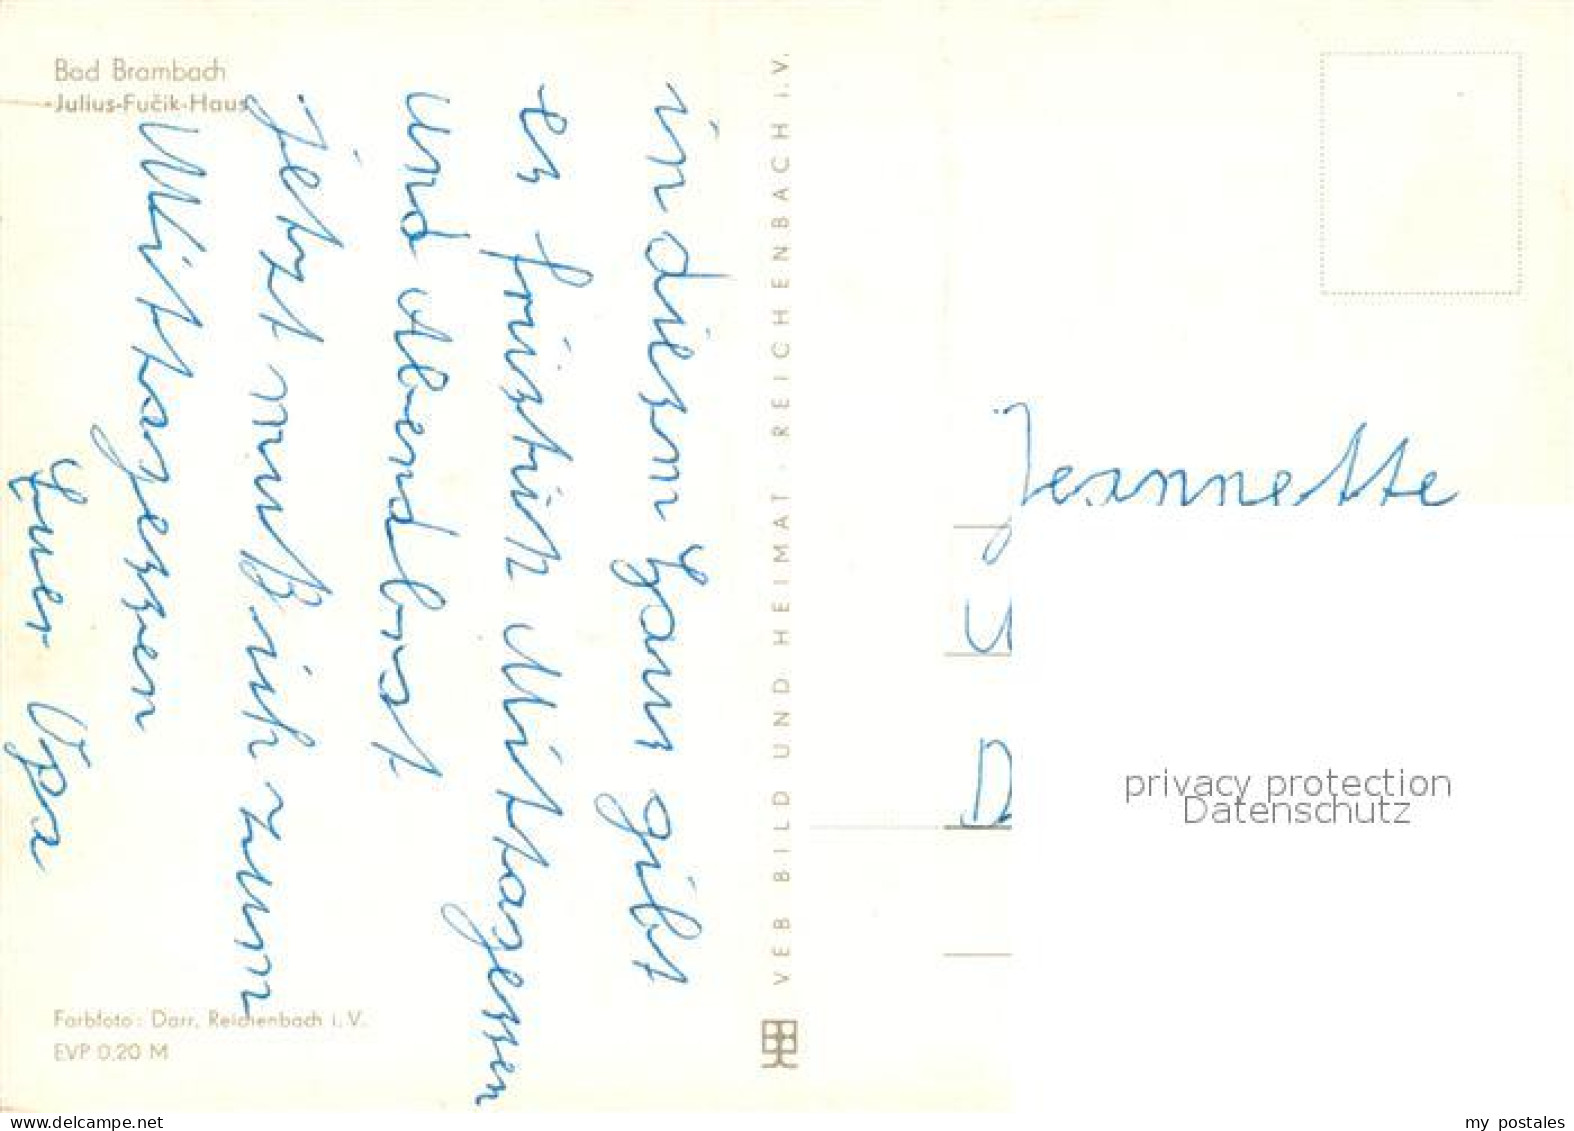 Bad Brambach
Julius-Fučik-Haus
in diesem Haus gibt
es früstük Mittagessen
und Abendbrot
Jetzt muß ich zum
Mittagessen
Euer Opa
Farbfoto: Darr, Reichenbach i. V.
EVP 0,20 M
VEB BILD UND HEIMAT · REICHENBACH i.V.
Jeannette
U
D
privacy protection
Datenschutz
delcampe.net
my postales